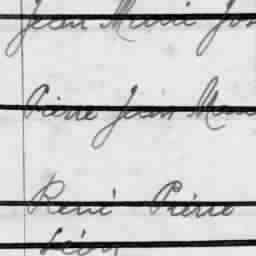 Jean Marie Jos
Pierre Jean Marie
René Pierre
Léon